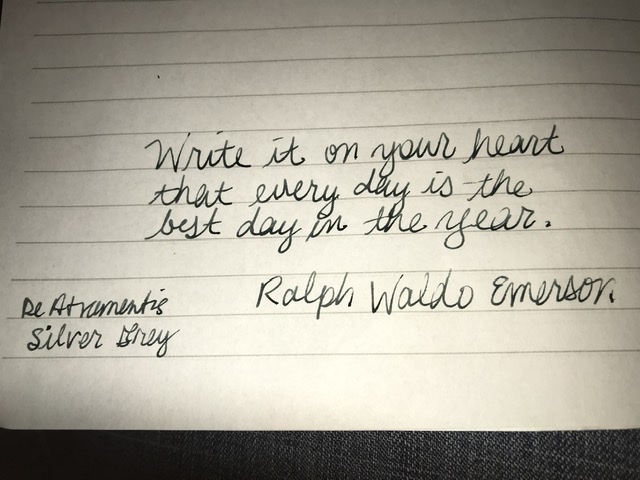 Write it on your heart
that every day is the
best day in the year.
Ralph Waldo Emerson.
De Atramentis
Silver Grey